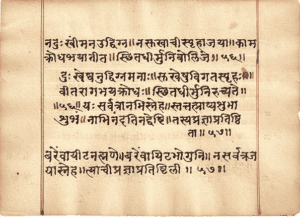 नदुःखीमनउद्विग्न॥नसुखाचीस्पृहाजया॥काम
क्रोधभयातीत॥स्थितधीर्मुनिबोलिजे॥५६॥
दुःखेष्वनुद्विग्नमनाः॥सुखेषुविगतस्पृहः॥
वीतरागभयक्रोधः॥स्थितधीर्मुनिरुच्यते
॥५६॥यःसर्वत्रानभिस्नेह॥स्तत्तत्प्राप्यशुभा
शुभं॥नाभिनंदतिनद्वेष्टि॥तस्यप्रज्ञाप्रतिष्ठि
ता॥५७॥
बरेंवायीटनम्हणे॥बरेंवायिटभोगुनि॥नसर्वत्रज
यास्नेह॥त्याचीप्रज्ञाप्रतिष्ठिली॥५७॥